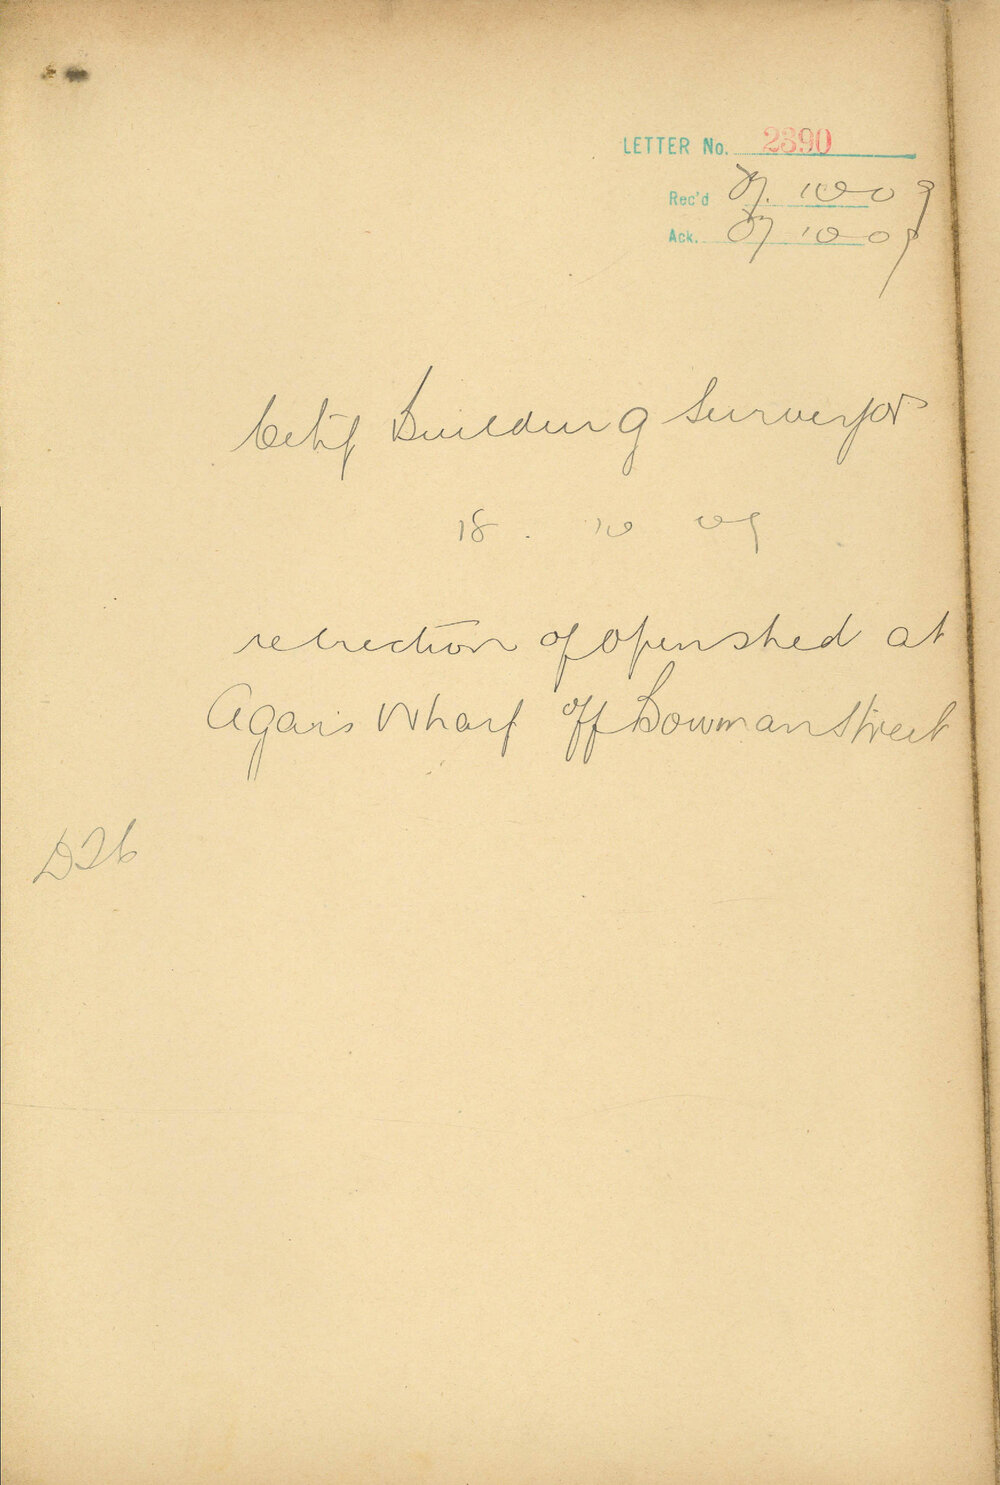 LETTER No. 2390
Rec'd 10 09
Ack. 10 09
City Building Surveyor
18 . 10 09
re erection of open shed at
Agars Wharf off Bowman Street